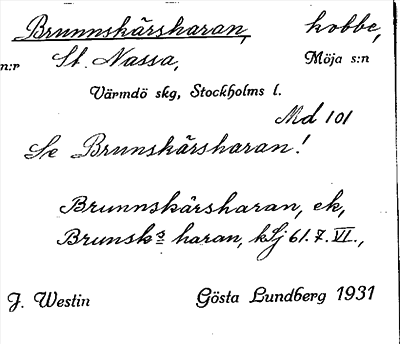 Brunnskärsharan, kobbe,
n:r St. Nassa, Möja s:n
Värmdö skg, Stockholms l.
Md 101
Se Brunskärsharan!
Brunnskärsharan, ek,
Brunsks haran, kSj 61.7.VI.,
J. Westin Gösta Lundberg 1931